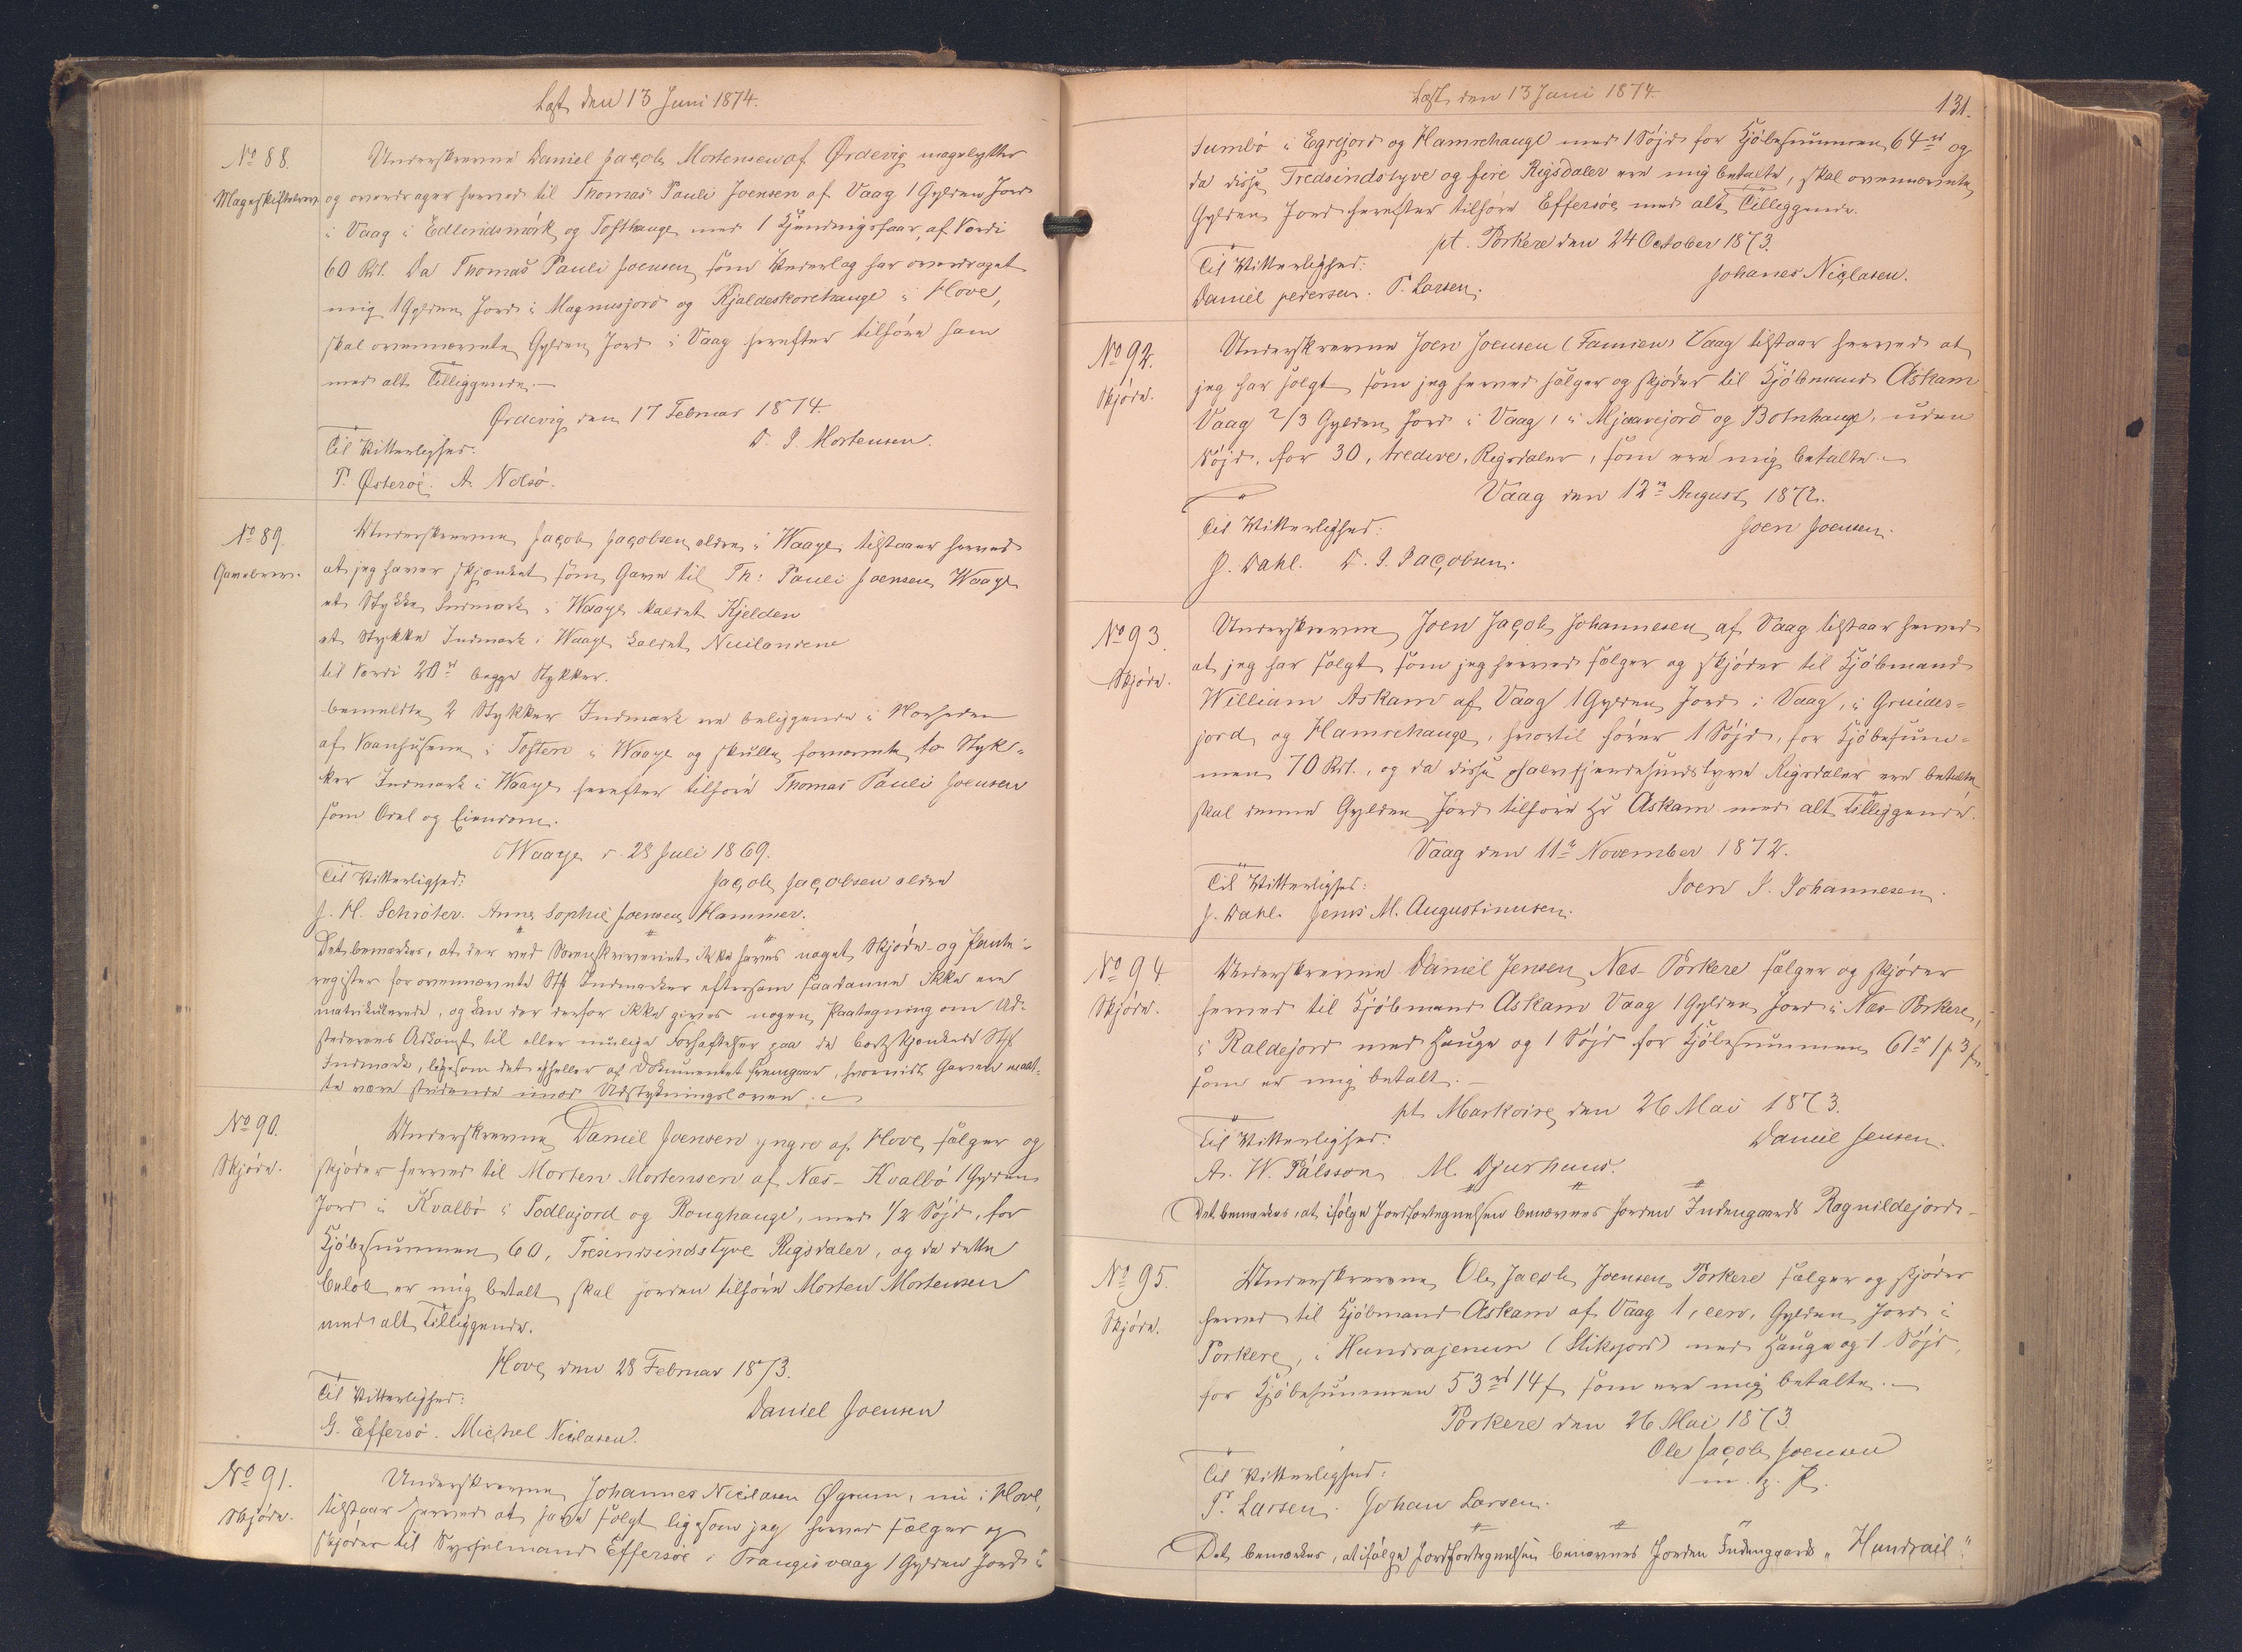 Læst den 13 Juni 1874.
No 88.
Mageskiftebrev.
Underskrevne Daniel Jacob Mortensen af Ørdevig magebytter
og overdrager herved til Thomas Pauli Joensen af Vaag 1 Gylden Jord
i Vaag i Edlindsmørk og Tofthauge med 1 Gjendnigsfaar, af Værdi
60 Rd. Da Thomas Pauli Joensen som Vederlag har overdraget
mig 1 Gylden Jord i Magnusjord og Kjaldeskorehauge i Hove,
skal ovennævnte Gylden Jord i Vaag herefter tilhøre ham
med alt Tilliggende.
Ørdevig den 17 Februar 1874.
Til Vitterlighed:
D. J. Mortensen.
P. Østerøe. A. Nolsø.
No 89.
Gavebrev.
Underskrevne Jacob Jacobsen ældre i Waage tilstaaer herved
at jeg haver skjænket som Gave til Th: Pauli Joensen Waage
et Stykke Indmark i Waage kaldet Kjelden
et Stykke Indmark i Waage kaldet Nuilandene
til Værdi 20 rd begge Stykker.
bemeldte 2 Stykker Indmark ere beliggende i Norheden
af Vaanhusene i Toften i Waage og skulle fornævnte to Styk-
ker Indmark i Waage herefter tilhøre Thomas Pauli Joensen
som Odel og Eiendom.
Waage d. 28 Juli 1869.
Til Vitterlighed:
Jacob Jacobsen ældre
J. H. Schrøter. Anne Sophie Joensen Hammer.
Det bemærkes, at der ved Sorenskriveriet ikke haves noget Skjøde- og Pante-
register for ovennævnte Stk Indmarker eftersom saadanne ikke ere
matrikulerede, og kan der derfor ikke gives nogen Paategning om Ud-
stederens Adkomst til eller mulige Forhæftelser paa de bortskjænkede Stk
Indmark, ligesom det ei heller af Dokumentet fremgaar, hvorvidt Gaven maat-
te være stridende imod Udstykningsloven.
No 90.
Skjøde.
Underskrevne Daniel Joensen yngre af Hove sælger og
skjøder herved til Morten Mortensen af Næs-Kvalbø 1 Gylden
Jord i Kvalbø i Todlajord og Roughauge, med 1/2 Søjd, for
Kjøbesummen 60, Tresindsindstyve Rigsdaler, og da dette
beløb er mig betalt skal jorden tilhøre Morten Mortensen
med alt Tilliggende.
Hove den 28 Februar 1873.
Til Vitterlighed:
Daniel Joensen
G. Effersø. Michel Niclasen.
No 91.
Skjøde.
Underskrevne Johannes Niclasen Øgrum, nu i Hove,
tilstaar herved at have solgt ligesom jeg herved sælger og
skjøder til Sysselmand Effersøe i Trangisvaag 1 Gylden Jord i
Læst den 13 Juni 1874.
131.
Sumbø i Egrejord og Hamrehauge med 1 Søjd for Kjøbesummen 64 rd og
da disse Tredsindstyve og fire Rigsdaler ere mig betalte, skal ovennævnte
Gylden Jord herefter tilhøre Effersøe med alt Tilliggende.
pt. Porkere den 24 October 1873.
Til Vitterlighed:
Johanes Niclasen.
Daniel pedersen. P. Larsen.
No 92.
Skjøde.
Underskrevne Joen Joensen (Famien) Vaag tilstaar herved at
jeg har solgt som jeg herved sælger og skjøder til Kjøbmand Askam
Vaag 2/3 Gylden Jord i Vaag, i Mjaavejord og Botnhauge, uden
Søjd, for 30, tredive, Rigsdaler, som ere mig betalte.
Vaag den 12te August 1872.
Til Vitterlighed:
Joen Joensen.
J. Dahl. D. J. Jacobsen.
No 93.
Skjøde.
Underskrevne Joen Jacob Johannesen af Vaag tilstaar herved
at jeg har solgt som jeg herved sælger og skjøder til Kjøbmand
William Askam af Vaag 1 Gylden Jord i Vaag, i Gruides-
jord og Hamrehauge, hvortil hører 1 Søjd, for Kjøbesum-
men 70 Rd., og da disse halvfjerdesindstyve Rigsdaler ere betalte
skal denne Gylden Jord tilhøre Hr Askam med alt Tilliggende.
Vaag den 11te November 1872.
Til Vitterlighed:
Joen J. Johannesen.
J. Dahl. Jens M. Augustinusen.
No 94
Skjøde.
Underskrevne Daniel Jensen Næs-Porkere sælger og skjøder
herved til Kjøbmand Askam Vaag 1 Gylden Jord i Næs-Porkere,
i Raldejord med Hauge og 1 Søjd for Kjøbesummen 61 rd 1 ƒ 3 ƒ,
som er mig betalt.
pt. Markoire den 26 Mai 1873.
Til Vitterlighed:
Daniel Jensen.
A. W. Pálsson. M. Djurhuus.
Det bemærkes, at ifølge Jordfortegnelsen benævnes Jorden Indengaards Ragnildejord.
No 95.
Skjøde.
Underskrevne Ole Jacob Joensen Porkere sælger og skjøder
herved til Kjøbmand Askam af Vaag 1, een, Gylden Jord i
Porkere, i Hundrajenun (Stiksjord) med Hauge og 1 Søjd,
for Kjøbesummen 53 rd 14 ƒ som ere mig betalte.
Porkere den 26 Mai 1873
Ole Jacob Joensen
m. f. P.
Til Vitterlighed:
P. Larsen. Johan Larsen.
Det bemærkes, at ifølge Jordfortegnelsen benævnes Jorden Indengaards "Hundrail".